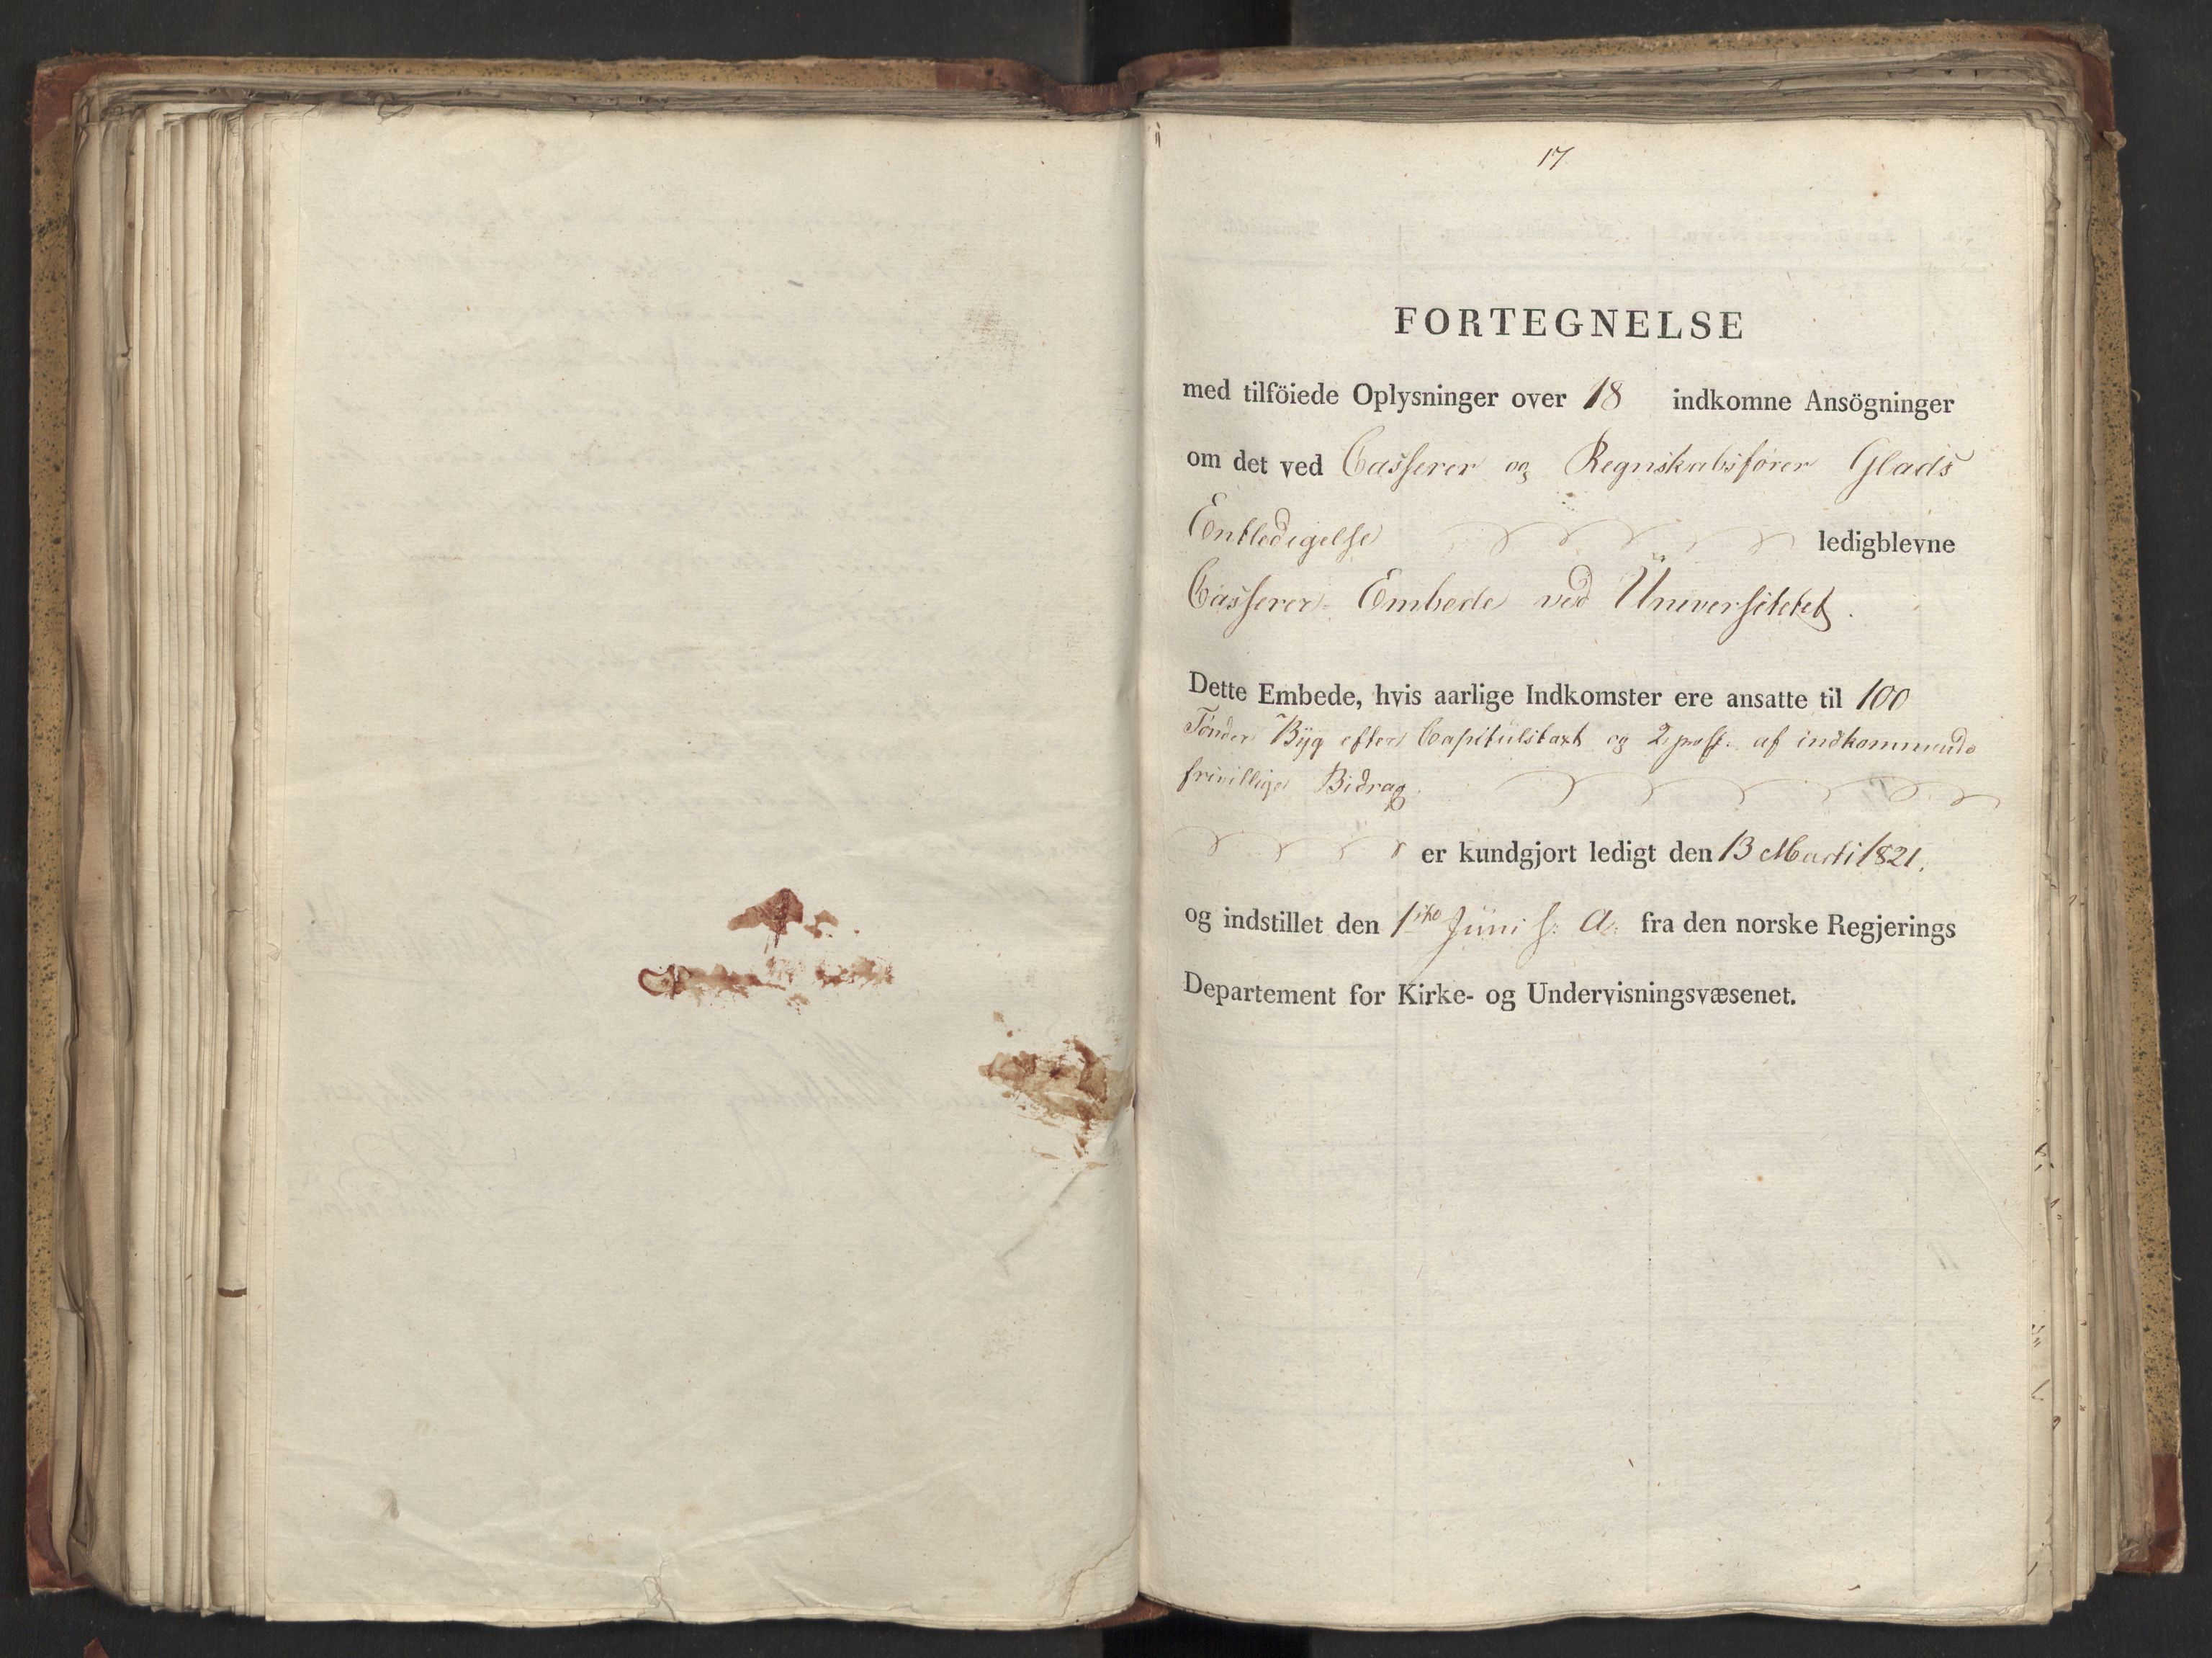 17
FORTEGNELSE
med tilföiede Oplysninger over 18 indkomne Ansögninger
om det ved Casserer og Regnskabsfører Glads
Entledigelse ledigblevne
Casserer-Embede ved Universitetet.
Dette Embede, hvis aarlige Indkomster ere ansatte til 100
Tønder Byg efter Capitulstaxt og 2 af indkommende
frivillige Bidrag.
er kundgjort ledigt den 13 Marti 1821,
og indstillet den 1ste Juni s: A: fra den norske Regjerings
Departement for Kirke- og Undervisningsvæsenet.